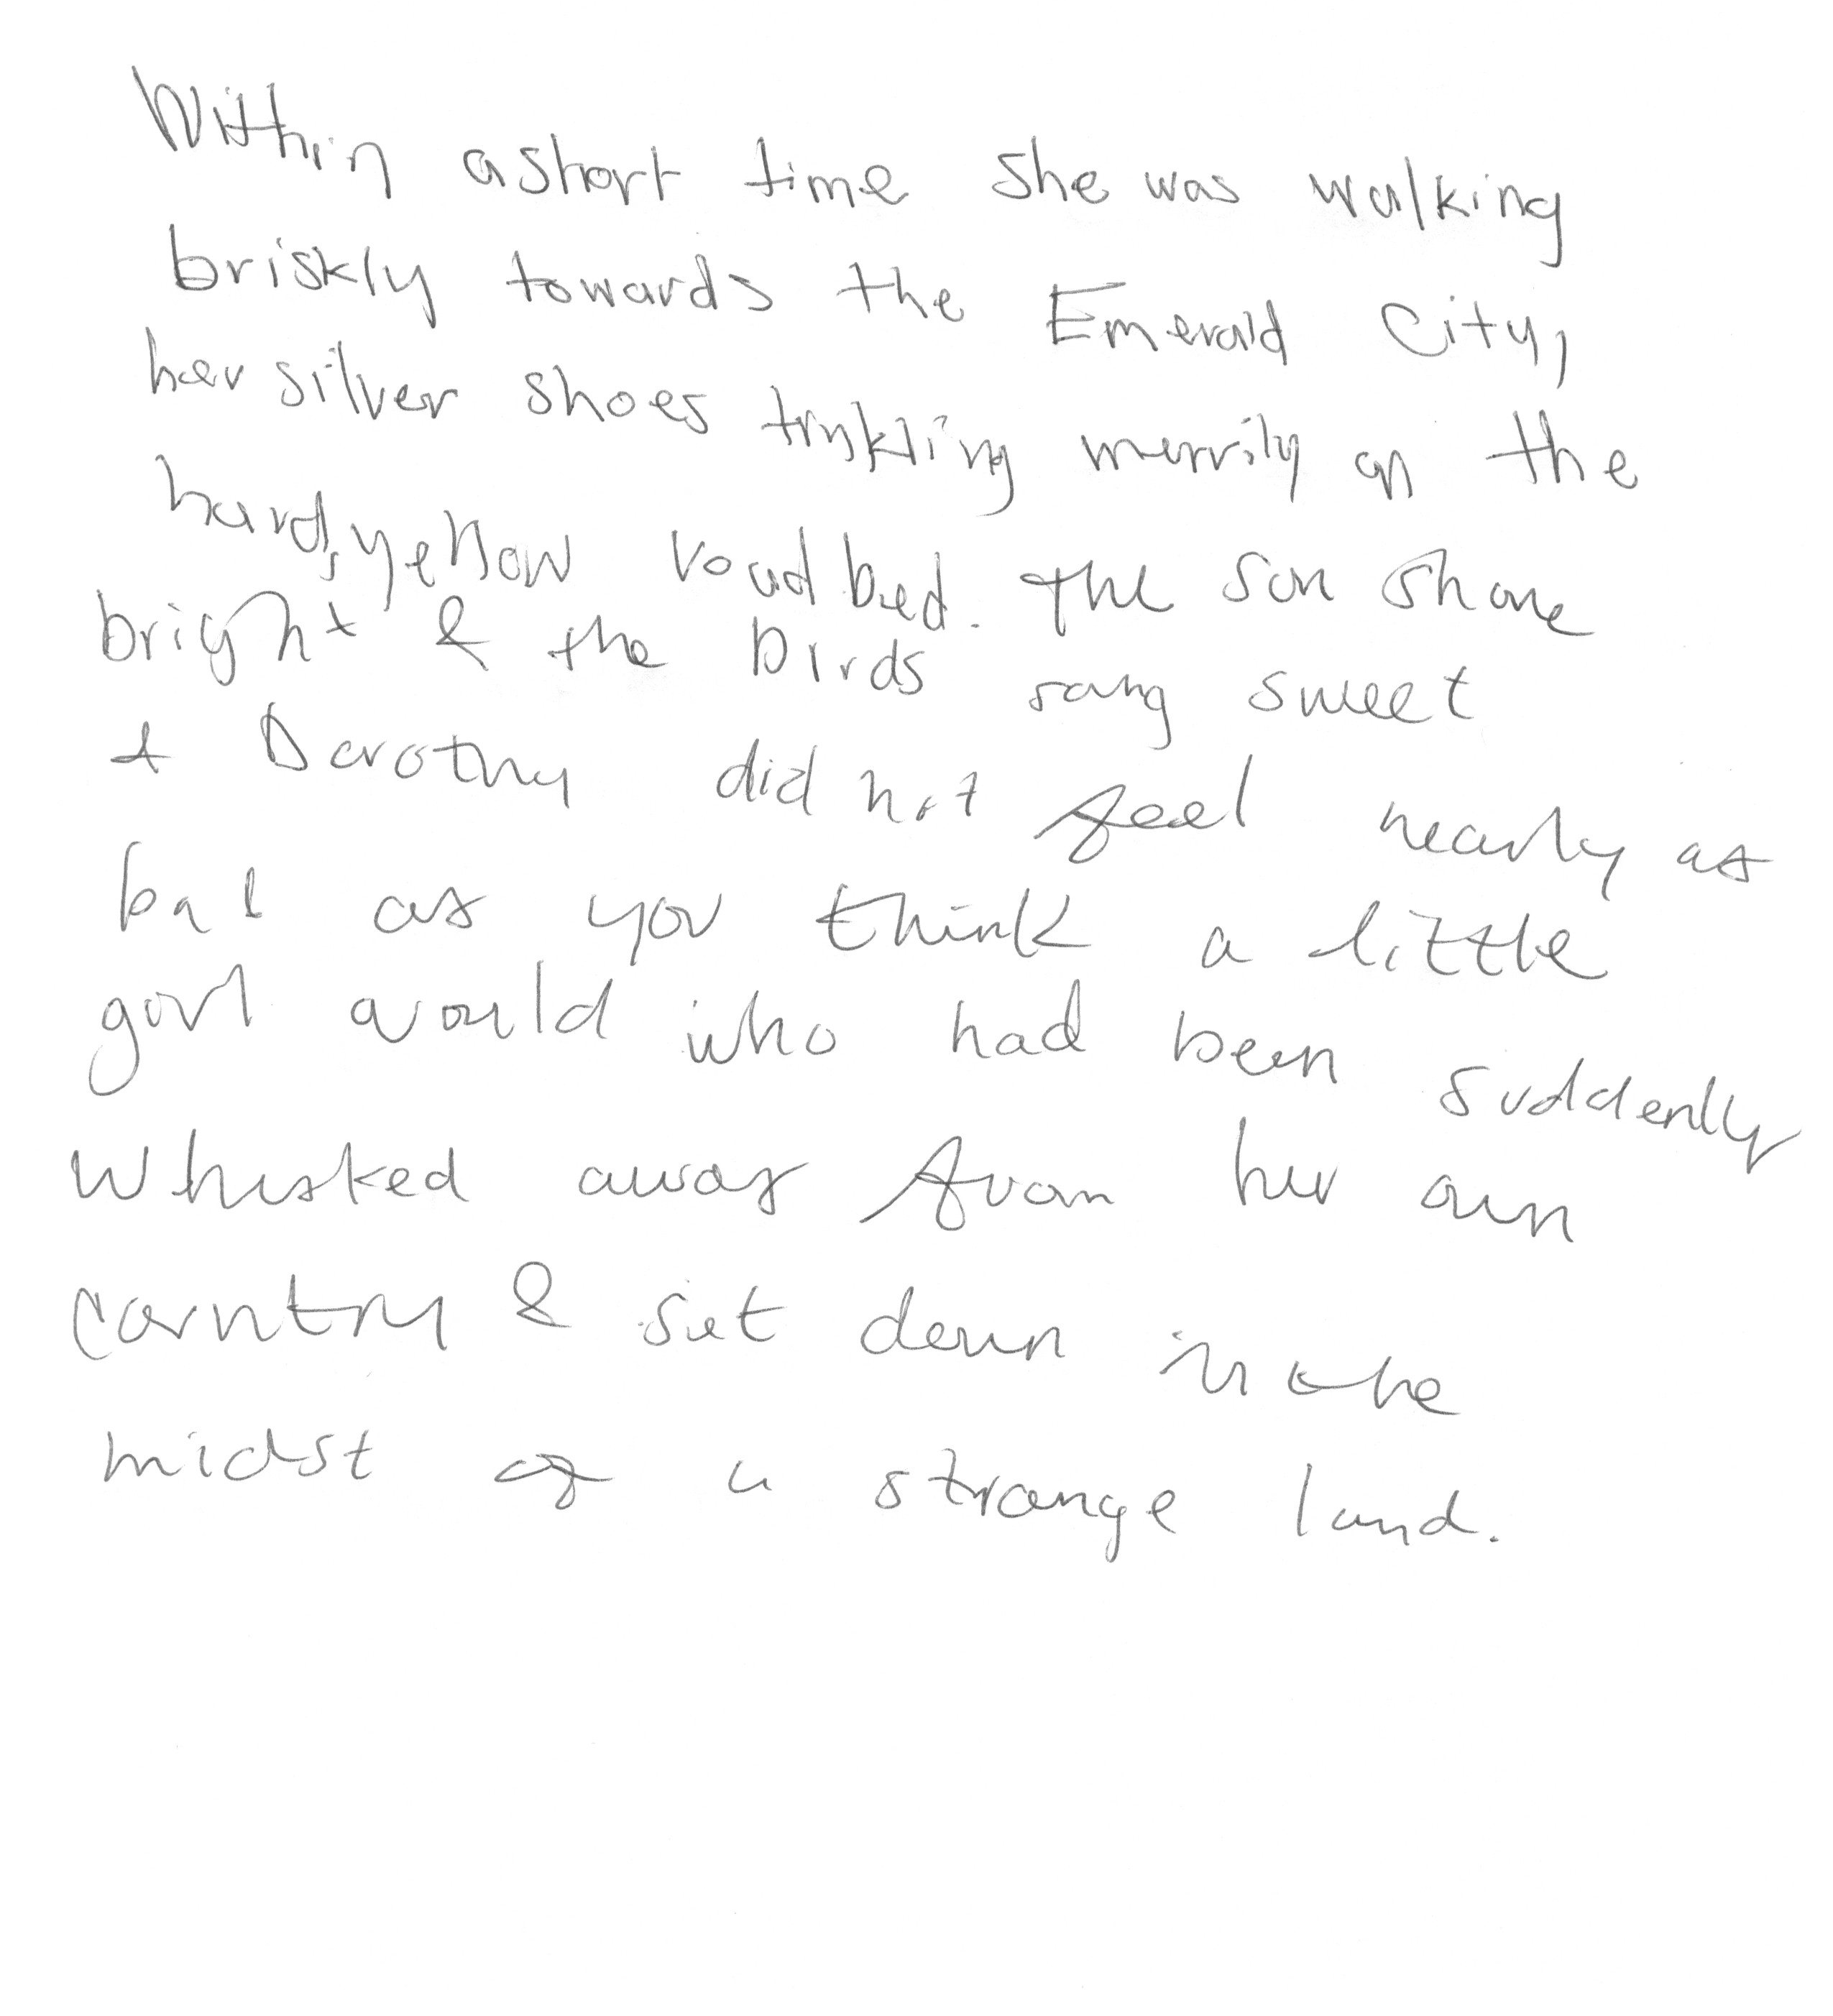 Within a short time she was walking
briskly towards the Emerald City,
her silver shoes tinkling merrily on the
hard, yellow roadbed. The sun shone
bright & the birds sang sweet
& Dorothy did not feel nearly as
bad as you think a little
girl would who had been suddenly
whisked away from her own
country & set down in the
midst of a strange land.